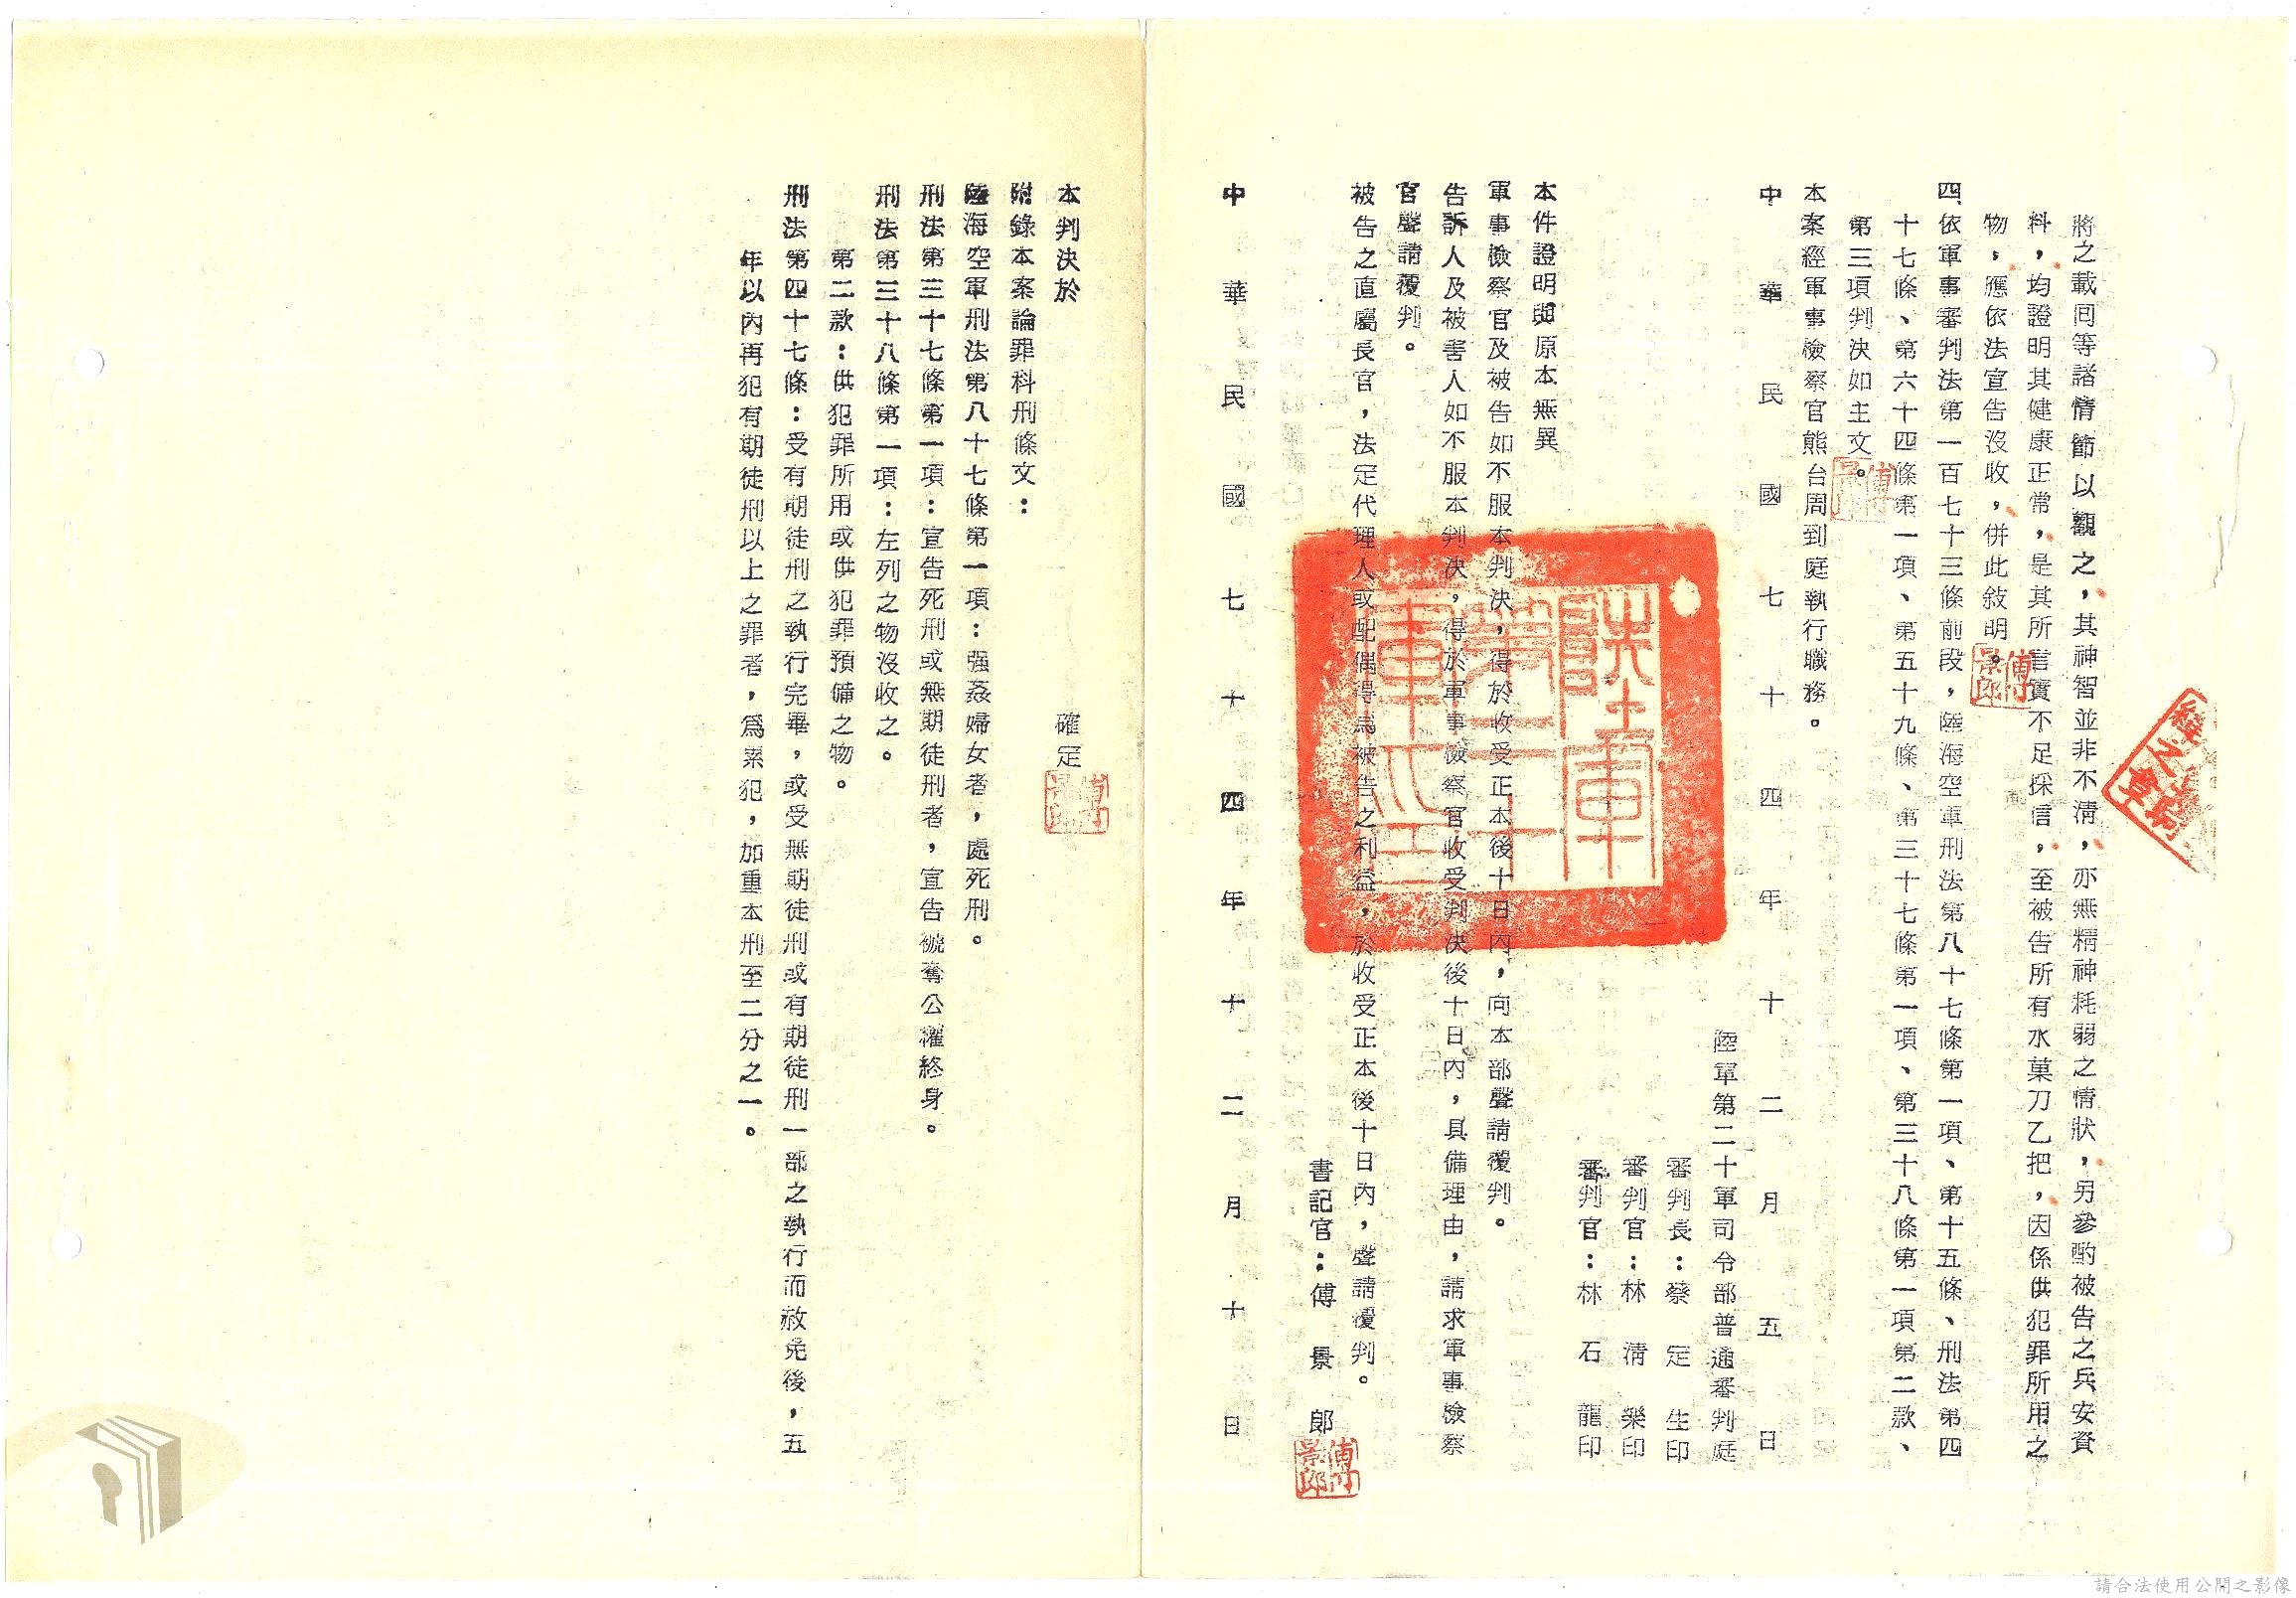 將之載回等諸情節以觀之，其神智並非不清，亦無精神耗弱之情狀，另參酌被告之兵安資
料，均證明其健康正常，是其所言實不足採信，至被告所有水菓刀乙把，因係供犯罪所用之
物，應依法宣告沒收，併此敍明。
四、依軍事審判法第一百七十三條前段，陸海空軍刑法第八十七條第一項、第十五條、刑法第四
十七條、第六十四條第一項、第五十九條、第三十七條第一項、第三十八條第一項第二款、
第三項判決如主文。
本案經軍事檢察官熊台周到庭執行職務。
中華民國七十四年十二月五日
陸軍第二十軍司令部普通審判庭
審判長：蔡定生印
審判官：林清樂印
審判官：林石龍印
本件證明與原本無異
軍事檢察官及被告如不服本判決，得於收受正本後十日內，向本部聲請覆判。
告訴人及被害人如不服本判決，得於軍事檢察官收受判決後十日內，具備理由，請求軍事檢察
官聲請覆判。
被告之直屬長官，法定代理人或配偶得為被告之利益，於收受正本後十日內，聲請覆判。
書記官：傅景郎
中華民國七十四年十二月十日
傅景郎
傅景郎
傅景郎
本判決於　確定
傅景郎
附錄本案論罪科刑條文：
陸海空軍刑法第八十七條第一項：强姦婦女者，處死刑。
刑法第三十七條第一項：宣告死刑或無期徒刑者，宣告褫奪公權終身。
刑法第三十八條第一項：左列之物沒收之。
第二款：供犯罪所用或供犯罪預備之物。
刑法第四十七條：受有期徒刑之執行完畢，或受無期徒刑或有期徒刑一部之執行而赦免後，五
年以內再犯有期徒刑以上之罪者，為累犯，加重本刑至二分之一。
請合法使用公開之影像